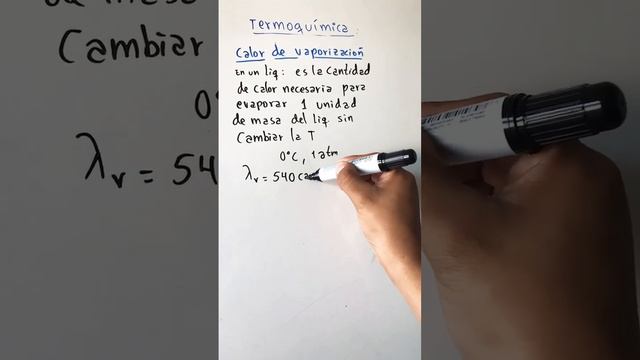 Termoquímica:
Calor de vaporización
en un liq: es la cantidad
de calor necesaria para
evaporar 1 unidad
de masa del liq sin
Cambiar la T
0°C, 1 atm
λv = 540 ca